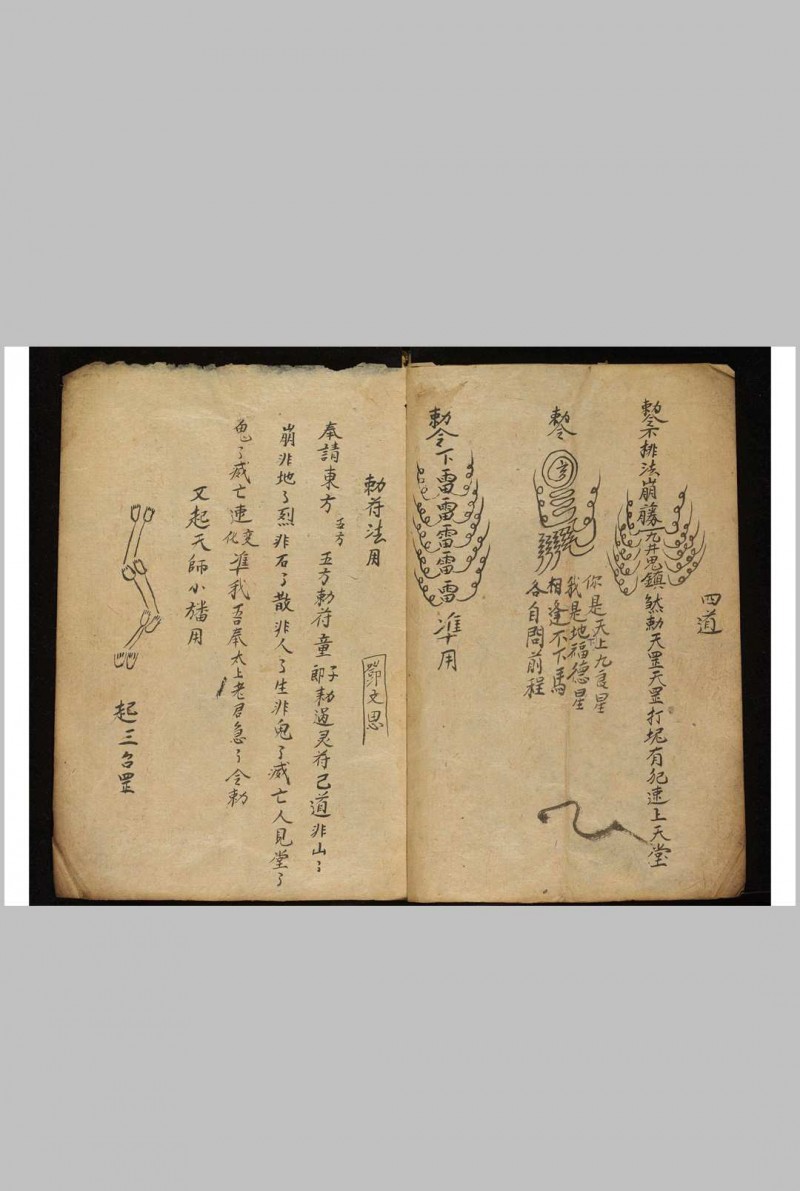 四道
勅令排法崩騰九井鬼鎮煞勅天罡天罡打坭有犯速上天堂
勅令
你是天上九良星
我是地福德星
相逢不下馬
各自問前程
勅令下雷雷雷雷雷準用
勅符法用
鄧文思
奉請東方五方五方勅符童子郎勅過灵符已道非山〻
崩非地〻烈非石〻散非人〻生非鬼〻滅亡人見堂〻
鬼〻滅亡連变化準我吾奉太上老君急〻令勅
又起天師小旛用
起三台罡